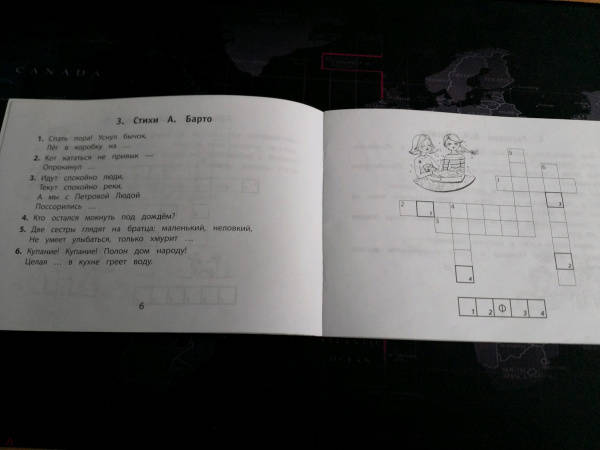 CANADA
3. Стихи А. Барто
1. Спать пора! Уснул бычок,
Лёг в коробку на ...
2. Кот кататься не привык —
Опрокинул ...
3. Идут спокойно люди,
Текут спокойно реки,
А мы с Петровой Людой
Поссорились ...
4. Кто остался мокнуть под дождём?
5. Две сестры глядят на братца: маленький, неловкий,
Не умеет улыбаться, только хмурит ...
6. Купание! Купание! Полон дом народу!
Целая ... в кухне греет воду.
6
3
6
1
3
2
1
4
5
2
4
1 2 Ф 3 4